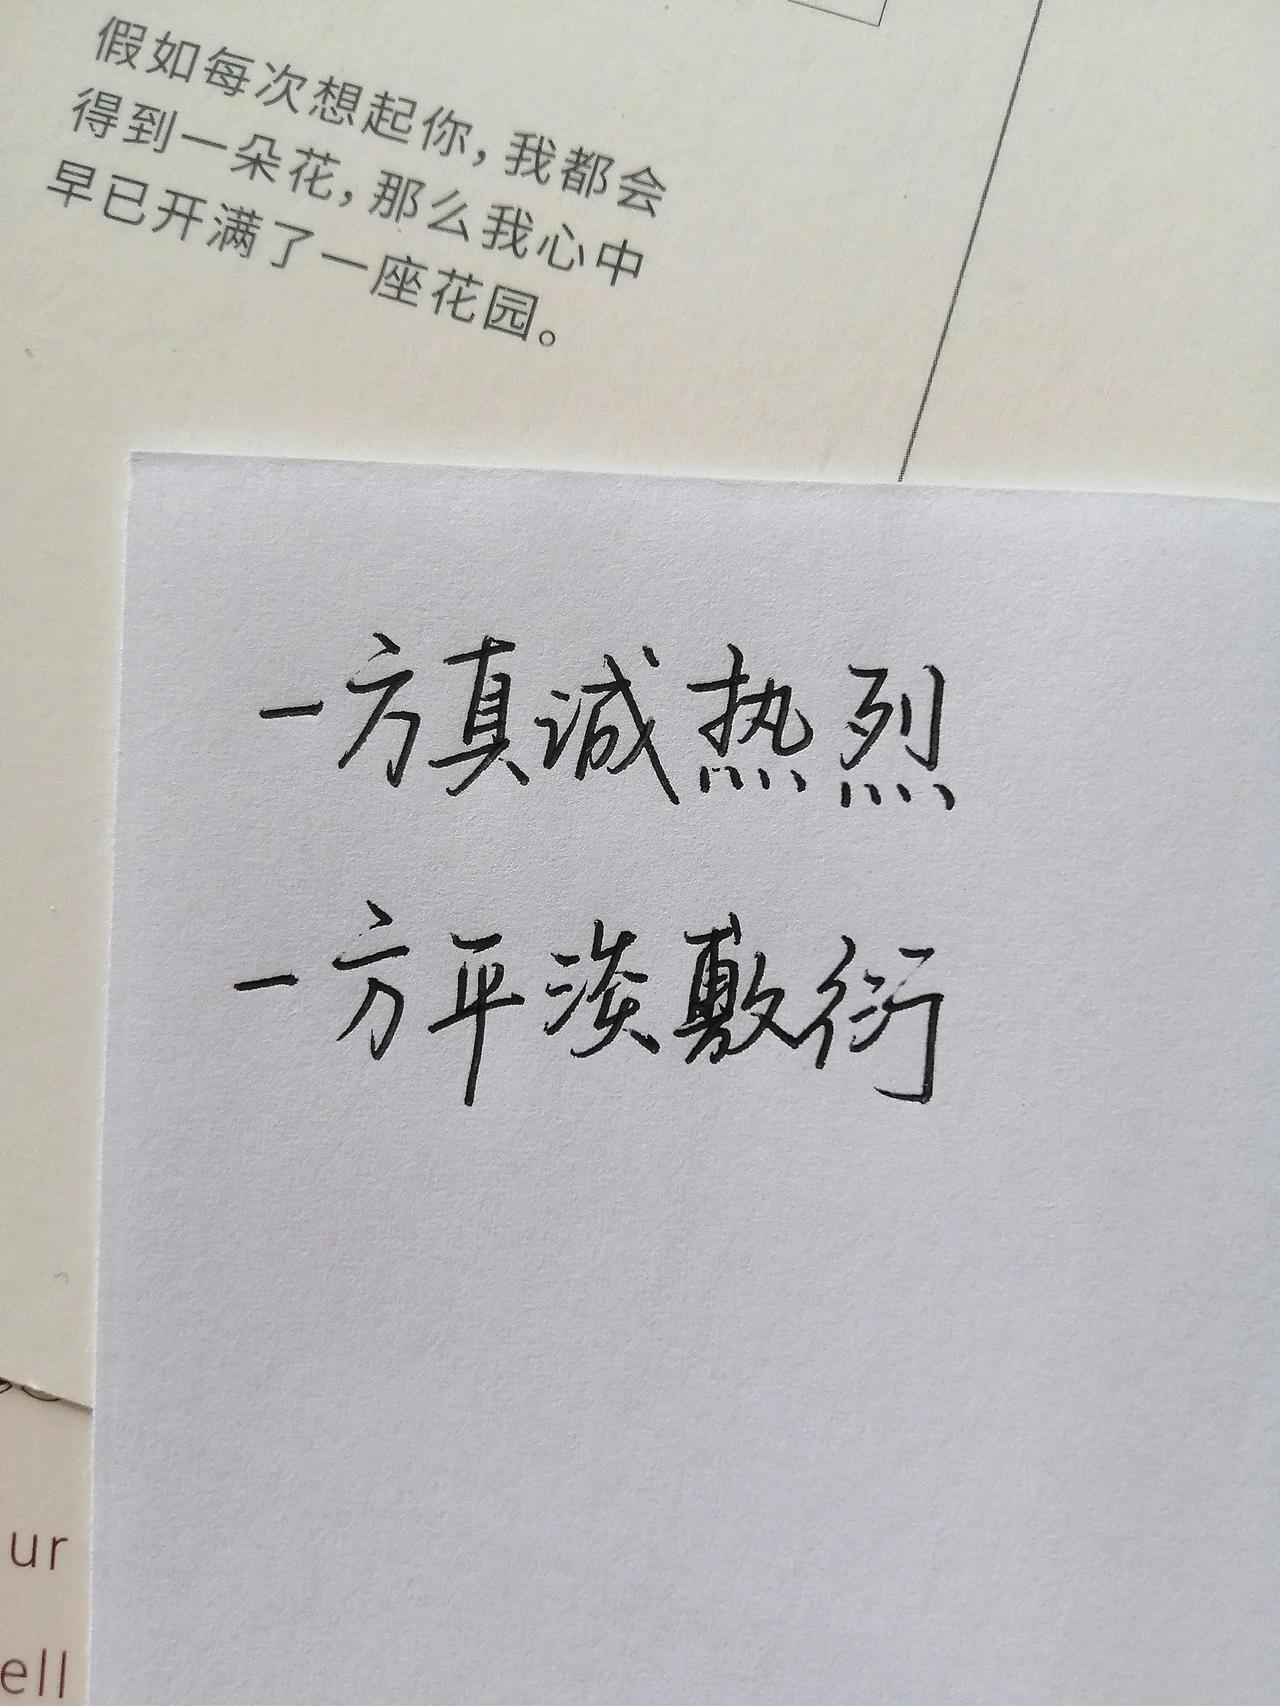 假如每次想起你，我都会
得到一朵花，那么我心中
早已开满了一座花园。
一方真诚热烈
一方平淡敷衍
ur
ell